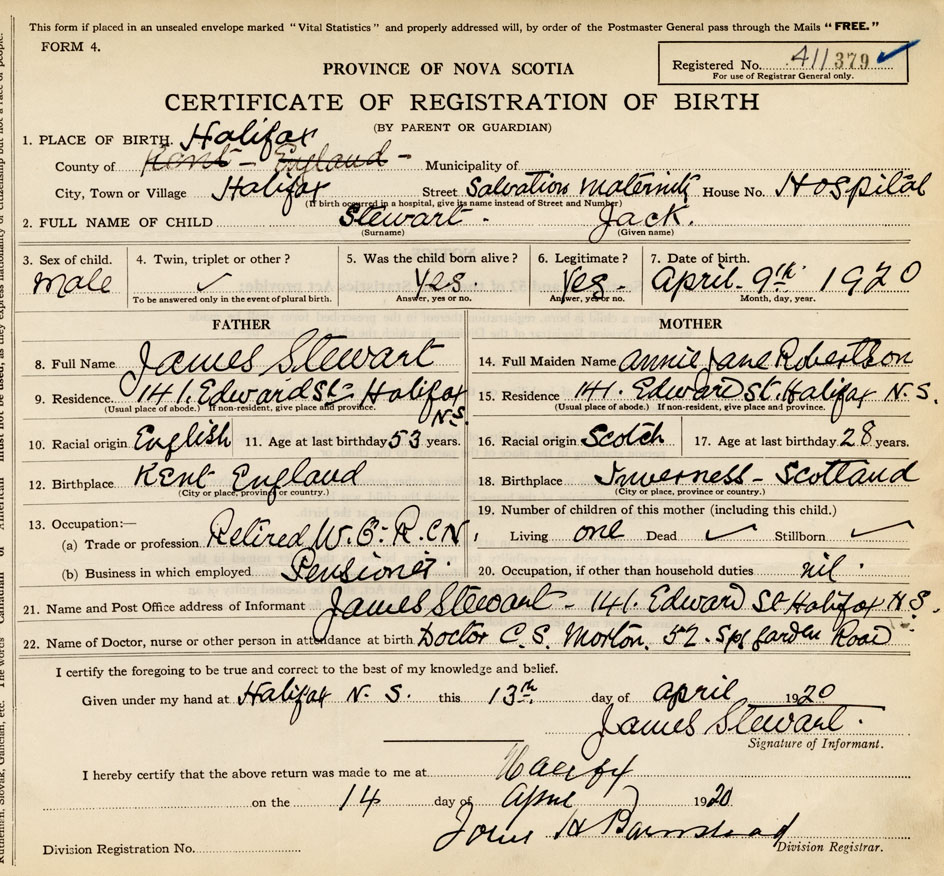 This form if placed in an unsealed envelope marked "Vital Statistics" and properly addressed will, by order of the Postmaster General pass through the Mails "FREE."
FORM 4.
Registered No. 411379
For use of Registrar General only.
PROVINCE OF NOVA SCOTIA
CERTIFICATE OF REGISTRATION OF BIRTH
(BY PARENT OR GUARDIAN)
1. PLACE OF BIRTH. Halifax
County of Kent - England - Municipality of
City, Town or Village Halifax Street Salvation Maternity House No. Hospital
(If birth occurred in a hospital, give its name instead of Street and Number)
2. FULL NAME OF CHILD Stewart - Jack.
(Surname) (Given name)
3. Sex of child. 4. Twin, triplet or other? 5. Was the child born alive? 6. Legitimate? 7. Date of birth.
Male ✓ Yes Yes - April - 9th 1920
To be answered only in the event of plural birth. Answer, yes or no. Answer, yes or no. Month, day, year.
FATHER MOTHER
8. Full Name James Stewart 14. Full Maiden Name Annie Jane Robertson
9. Residence. 141. Edward St= Halifax N.S. 15. Residence 141. Edward St. Halifax N.S.
(Usual place of abode.) If non-resident, give place and province. (Usual place of abode.) If non-resident, give place and province.
10. Racial origin English 11. Age at last birthday 53 years. 16. Racial origin Scotch 17. Age at last birthday 28 years.
12. Birthplace Kent England 18. Birthplace Inverness - Scotland
(City or place, province or country.) (City or place, province or country.)
13. Occupation:— 19. Number of children of this mother (including this child.)
(a) Trade or profession Retired W.O. R.C.N. Living one Dead ✓ Stillborn ✓
(b) Business in which employed Pensioner. 20. Occupation, if other than household duties nil.
21. Name and Post Office address of Informant James Stewart - 141. Edward St Halifax N.S.
22. Name of Doctor, nurse or other person in attendance at birth Doctor C. S. Morton. 52. Spg Garden Road
I certify the foregoing to be true and correct to the best of my knowledge and belief.
Given under my hand at Halifax N.S. this 13th day of April 1920
James Stewart.
Signature of Informant.
I hereby certify that the above return was made to me at Halifax
on the 14 day of April 1920
John H Barnstead
Division Registration No. Division Registrar.